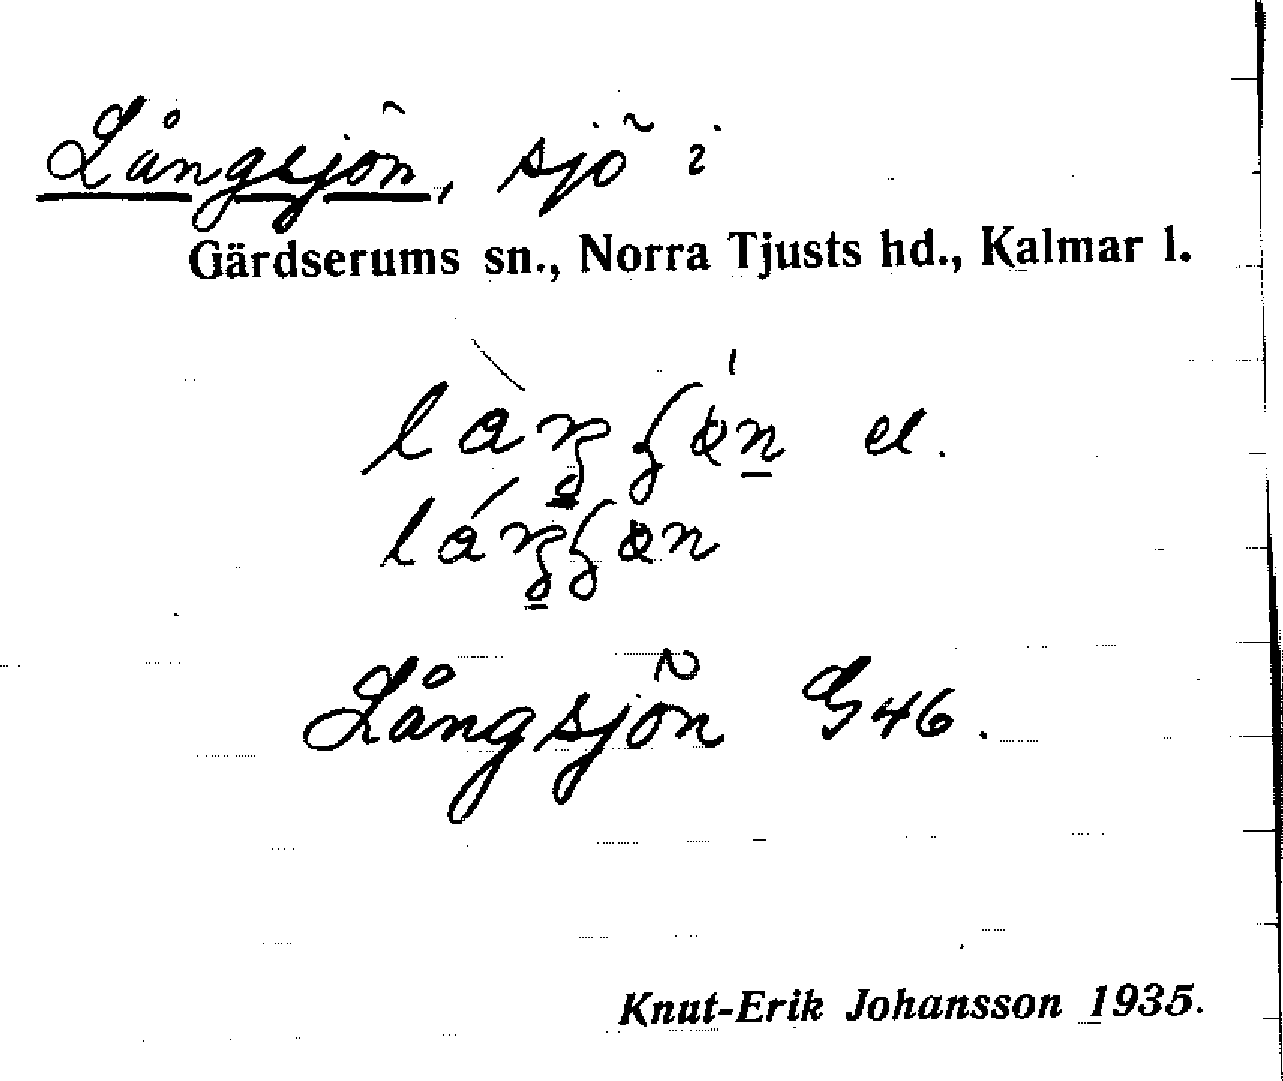 Långsjön, sjö i
Gärdserums sn., Norra Tjusts hd., Kalmar l.
el.
Långsjön G46.
Knut-Erik Johansson 1935.